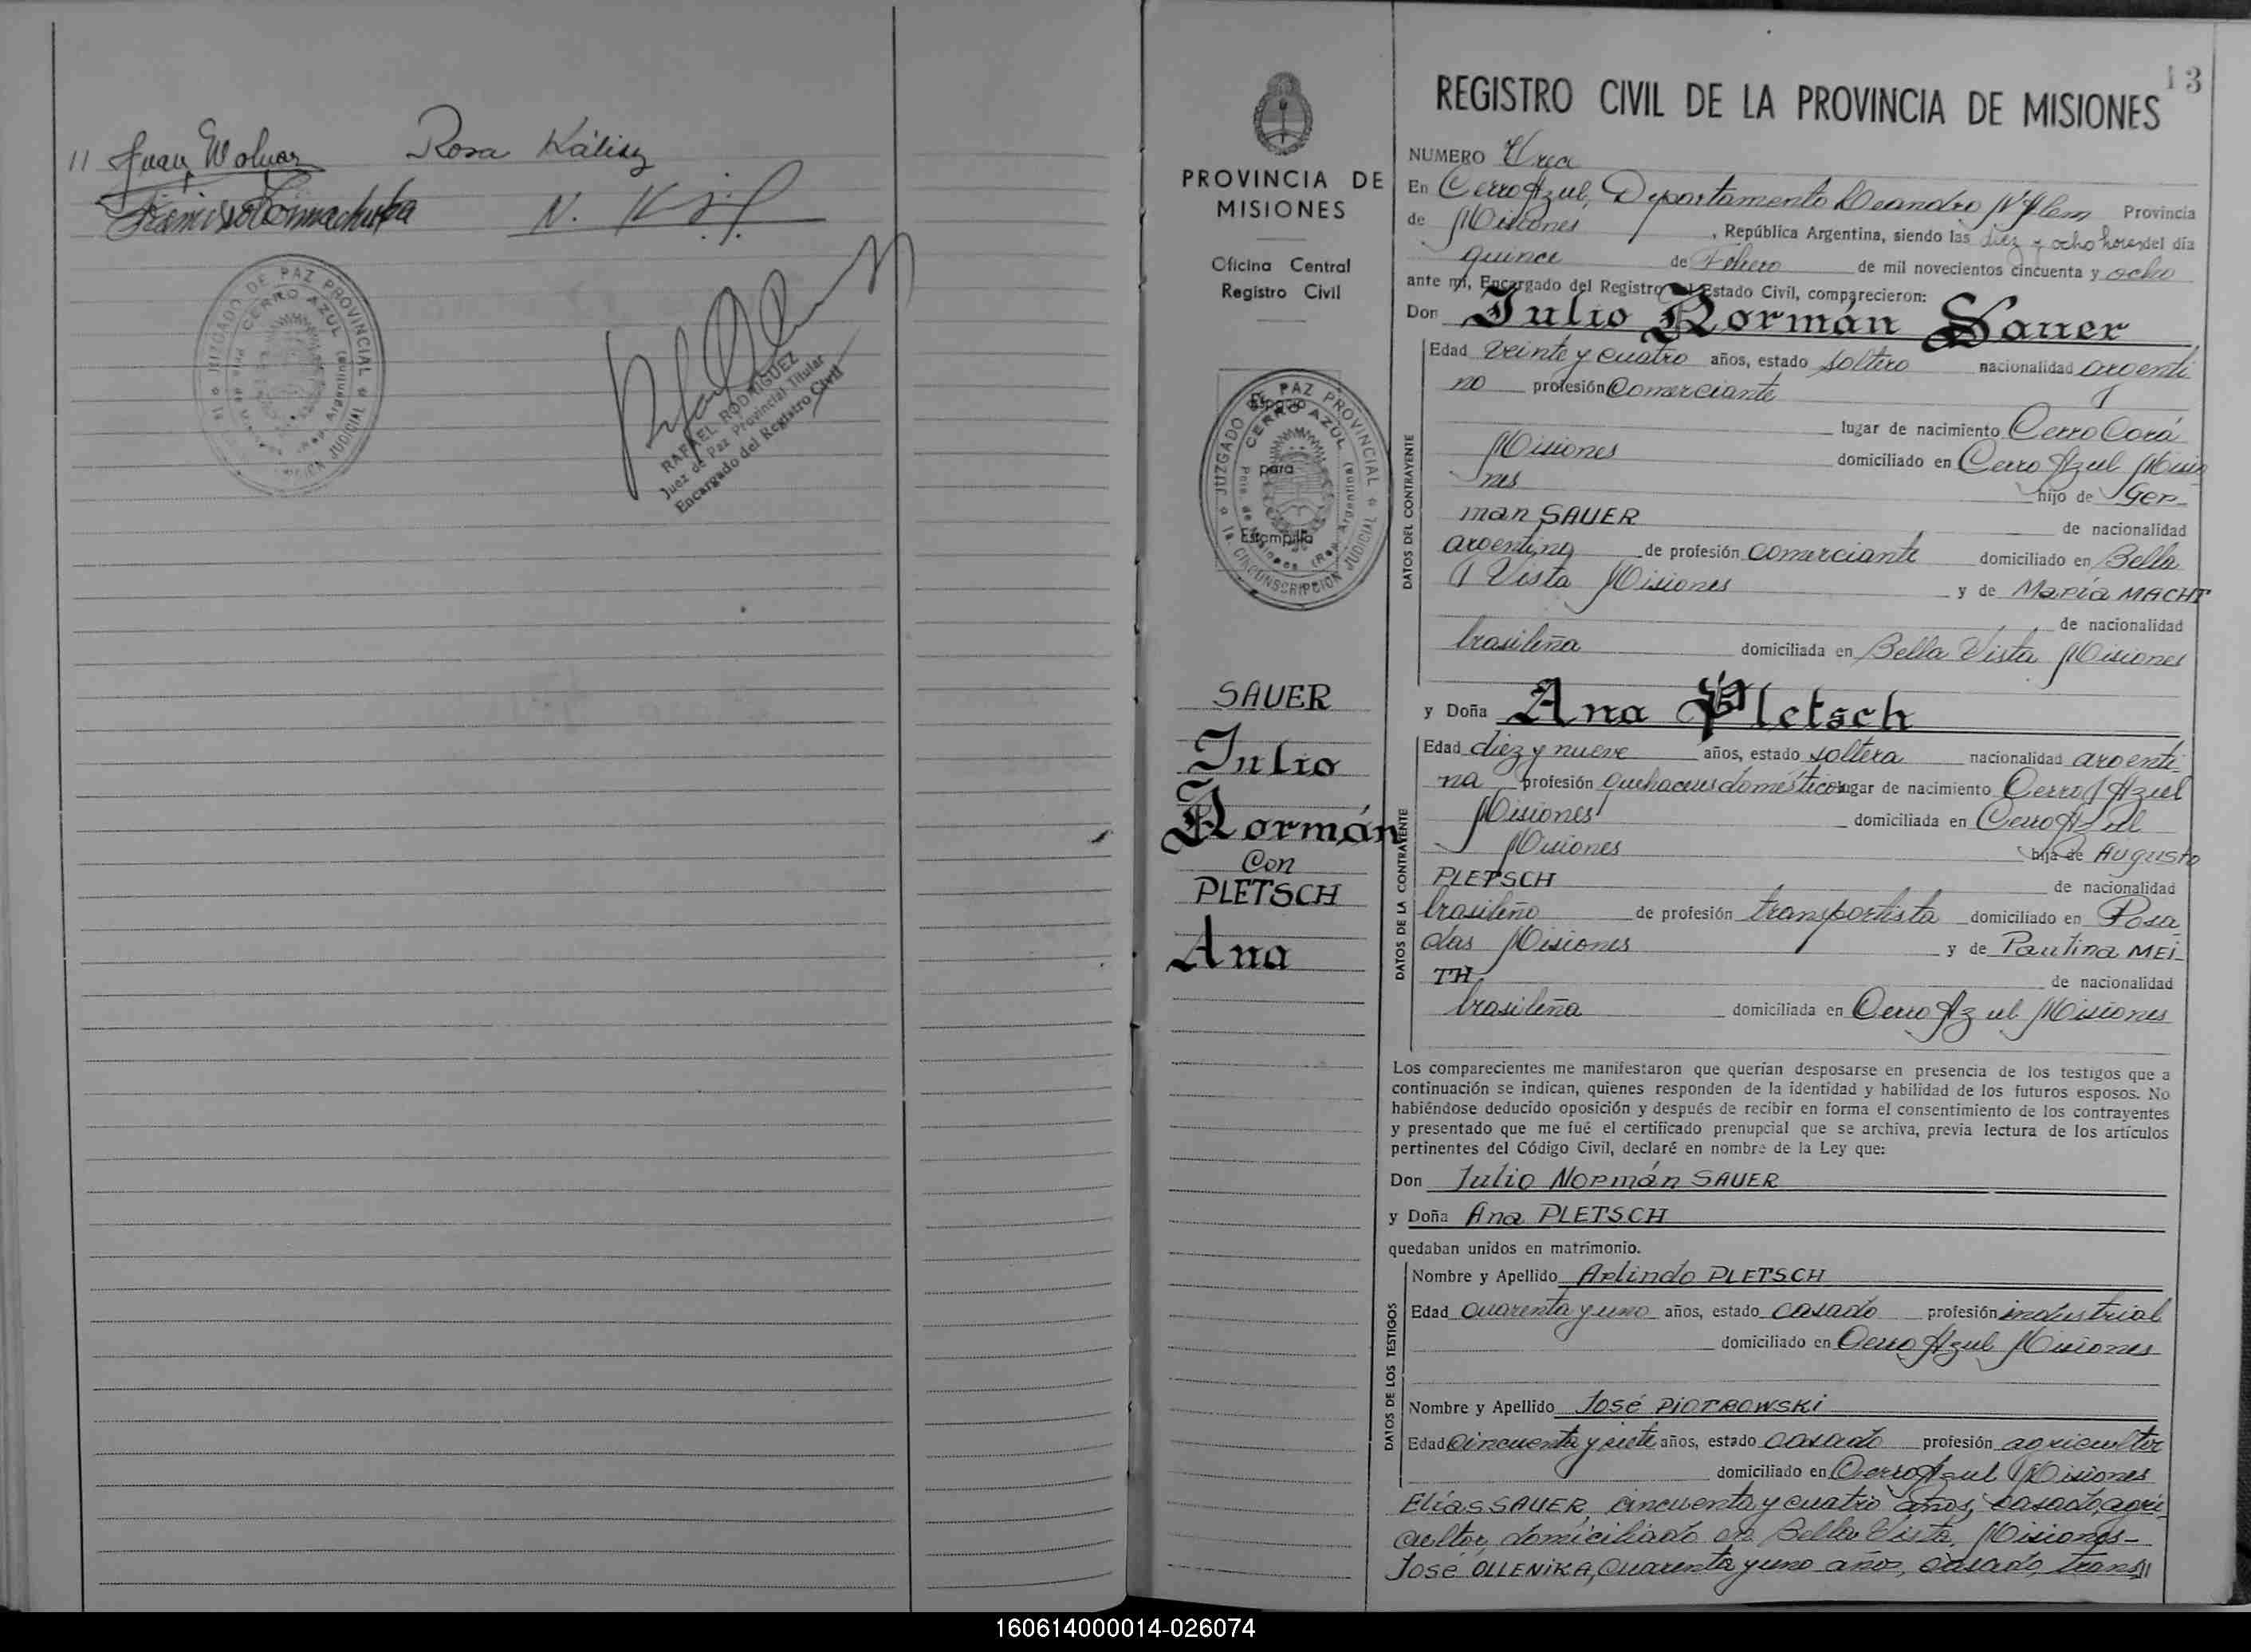 11 Juan Woluar Rosa Káliky
N. K
JUZGADO DE PAZ PROVINCIAL
CERRO AZUL
RAFAEL RODRIGUEZ
Juez de Paz Provincial Titular
Encargado del Registro Civil
13
PROVINCIA DE
MISIONES
Oficina Central
Registro Civil
JUZGADO DE PAZ PROVINCIAL
CERRO AZUL
Espacio
para
Estampilla
Pnia. de Misiones (Rep. Argentina)
1a. CIRCUNSCRIPCION JUDICIAL
SAUER
Julio
Normán
Con
PLETSCH
Ana
REGISTRO CIVIL DE LA PROVINCIA DE MISIONES
NUMERO
En Cerro Azul, Departamento Leandro N Alem Provincia
de Misiones, República Argentina, siendo las diez y ocho horas del día
quince de Febrero de mil novecientos cincuenta y ocho
ante mí, Encargado del Registro del Estado Civil, comparecieron:
Don Julio Normán Sauer
DATOS DEL CONTRAYENTE
Edad veinte y cuatro años, estado soltero nacionalidad argenti
no profesión Comerciante
lugar de nacimiento Cerro Corá
Misiones domiciliado en Cerro Azul Misio
nes hijo de Ger-
man SAUER de nacionalidad
argentina de profesión comerciante domiciliado en Bella
Vista Misiones y de María MACHT
de nacionalidad
brasileña domiciliada en Bella Vista Misiones
y Doña Ana Pletsch
DATOS DE LA CONTRAYENTE
Edad diez y nueve años, estado soltera nacionalidad argenti-
na profesión quehaceres domésticos lugar de nacimiento Cerro Azul
Misiones domiciliada en Cerro Azul
Misiones hija de Augusto
PLETSCH de nacionalidad
brasileño de profesión transportista domiciliado en Posa
das Misiones y de Paulina MEI-
TH de nacionalidad
brasileña domiciliada en Cerro Azul Misiones
Los comparecientes me manifestaron que querían desposarse en presencia de los testigos que a
continuación se indican, quienes responden de la identidad y habilidad de los futuros esposos. No
habiéndose deducido oposición y después de recibir en forma el consentimiento de los contrayentes
y presentado que me fué el certificado prenupcial que se archiva, previa lectura de los artículos
pertinentes del Código Civil, declaré en nombre de la Ley que:
Don Julio Normán SAUER
y Doña Ana PLETSCH
quedaban unidos en matrimonio.
DATOS DE LOS TESTIGOS
Nombre y Apellido Arlindo PLETSCH
Edad cuarenta y uno años, estado casado profesión industrial
domiciliado en Cerro Azul Misiones
Nombre y Apellido José PIOTROWSKI
Edad Cincuenta y siete años, estado casado profesión agricultor
domiciliado en Cerro Azul Misiones
Elías SAUER, cincuenta y cuatro años, casado, agri-
cultor, domiciliado en Bella Vista, Misiones-
José OLLENIKA, cuarenta y uno años, casado, trans//
160614000014-026074